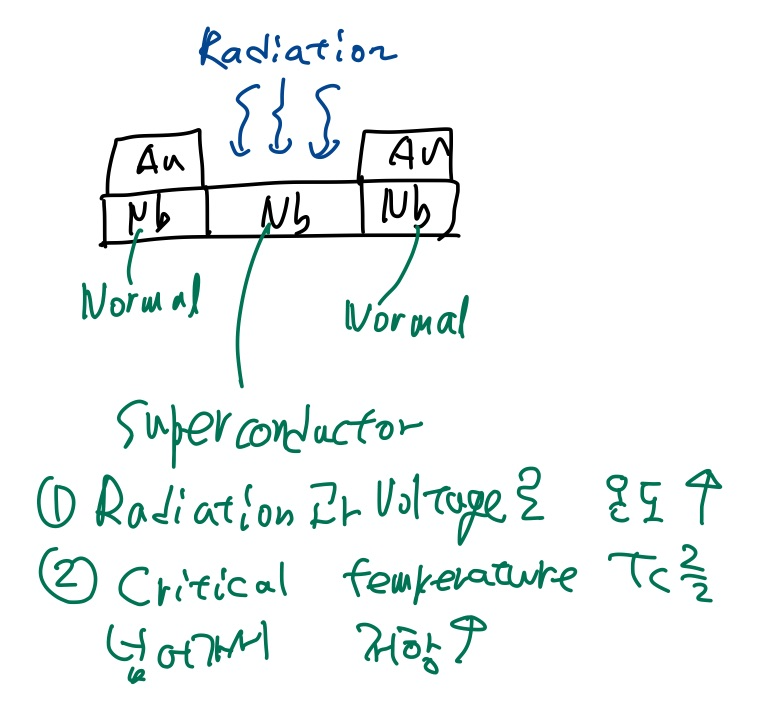 Radiation
Au Au
Nb Nb Nb
Normal Normal
Superconductor
① Radiation과 Voltage로 온도 ↑
② Critical temperature Tc를
넘어가서 저항 ↑